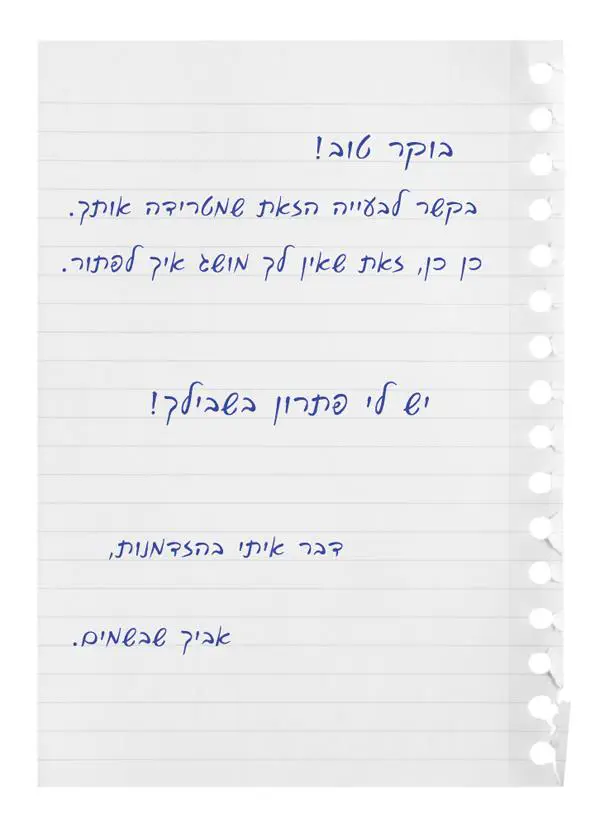 בוקר טוב!
בקשר לבעייה הזאת שמטרידה אותך.
כן כן, זאת שאין לך מושג איך לפתור.
יש לי פתרון בשבילך!
דבר איתי בהזדמנות,
אביך שבשמים.